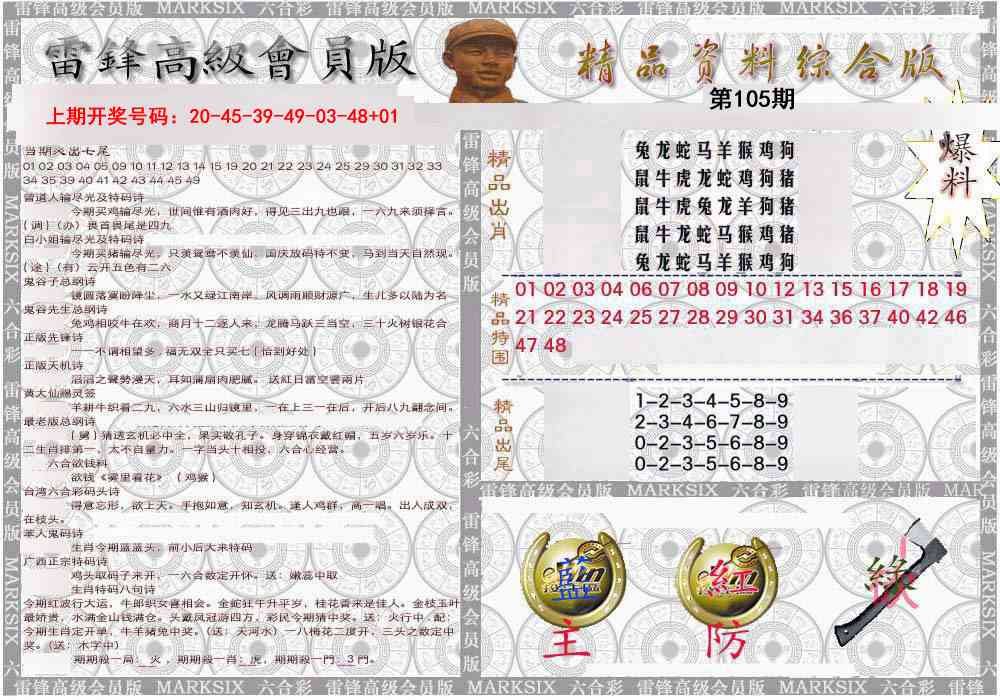 雷锋高级会员版 MARKSIX 六合彩 雷锋高级会员版 MARKSIX 六合彩 雷锋高级会员版 MARKSIX 六合彩 雷锋
雷鋒高級會員版
精品资料综合版
第105期
上期开奖号码：20-45-39-49-03-48+01
01 02 03 04 05 09 10 11 12 13 14 15 19 20 21 22 23 24 25 29 30 31 32 33
34 35 39 40 41 42 43 44 45 49
曾道人输尽光及特码诗
今期买鸡输尽光，世间惟有酒肉好，得见三出九也跟，一六九来须择言。
(调)(办)畏首畏尾是四九
白小姐输尽光及特码诗
今期买猪输尽光，只羡鸳鸯不羡仙，国庆放码特不变，马到当天自然现。
(途)(有)云开五色有二六
鬼谷子总纲诗
镜圆落寞盼降尘，一水又绿江南岸。风调雨顺财源广，生儿多以陆为名
鬼谷先生总纲诗
兔鸡相咬牛在欢，商月十二逐人来，龙腾马跃三当空，三十火树银花合
正版先锋诗
——不谓相望多，福无双全只买七(恰到好处)
正版天机诗
滔滔之聲勢漫天，耳如蒲扇肉肥膩。送紅日當空雲兩片
黄大仙赐灵签
羊耕牛织看二九，六水三山归镜里，一在上三一在后，开后八九翻念间。
最老版总纲诗
(舅)猜送玄机必中全，果实敬孔子。身穿锦衣戴红帽，五岁六岁乐。十
二生肖排第一，太不自量力。一字当头十相投，六合心经营。
六合欲钱料
欲钱《雾里看花》（鸡猴）
台湾六合彩码头诗
得意忘形，欲上天。手抱如意，知玄机。逢人鸡群，高一唱。出入成双，
在枝头。
本人鬼码诗
生肖今期蓝蓝头，前小后大来特码
广西正宗特码诗
鸡头取码子来开，一六合数定开怀。送：嫩蕊中取
生肖特码八句诗
今期红波行大运，牛郎织女喜相会。金蛇狂午升平岁，桂花香来是佳人。金枝玉叶
最娇贵，水满金山钱满仓。头戴凤冠游四方，彩民今期猜中奖。送：火行中.配：
今期生肖定开单，牛羊猪兔中奖。(送：天河水)一八梅花二度开，三头之数定中
奖。(送：木字中)
期期殺一局：火，期期殺一肖：虎，期期殺一門：3門。
精品出肖
兔龙蛇马羊猴鸡狗
鼠牛虎龙蛇鸡狗猪
鼠牛虎兔龙羊狗猪
鼠牛龙蛇马猴鸡猪
兔龙蛇马羊猴鸡狗
爆料
精品特围
01 02 03 04 06 07 08 09 10 12 13 15 16 17 18 19
21 22 23 24 25 27 28 29 30 31 34 36 37 40 42 46
47 48
精品出尾
1-2-3-4-5-8-9
2-3-4-6-7-8-9
0-2-3-5-6-8-9
0-2-3-5-6-8-9
雷锋高级会员版 MARKSIX 六合彩 雷锋高级会员版 MAR
藍
主
紅
防
綠
雷锋高级会员版 MARKSIX 六合彩 雷锋高级会员版 MARKSIX 六合彩 雷锋高级会员版 MARKSIX 六合彩 雷锋